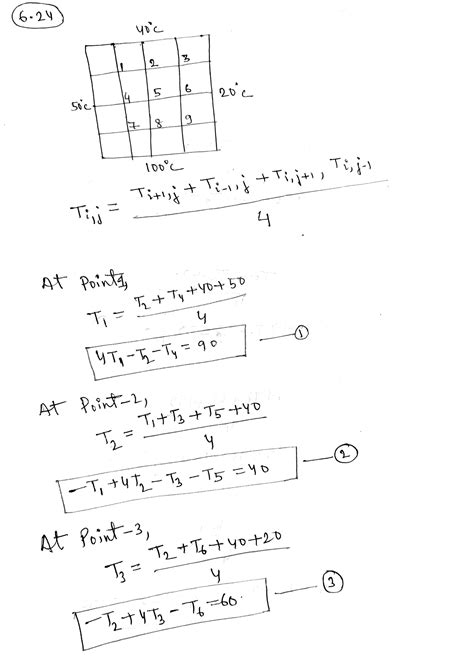 6.24
40°C
1 2 3
50°C 4 5 6 20°C
7 8 9
100°C
Ti,j = (Ti+1,j + Ti-1,j + Ti,j+1, Ti,j-1) / 4
At Point 1,
T1 = (T2 + T4 + 40 + 50) / 4
4T1 - T2 - T4 = 90 — ①
At Point-2,
T2 = (T1 + T3 + T5 + 40) / 4
-T1 + 4T2 - T3 - T5 = 40 — ②
At Point-3,
T3 = (T2 + T6 + 40 + 20) / 4
-T2 + 4T3 - T6 = 60. — ③